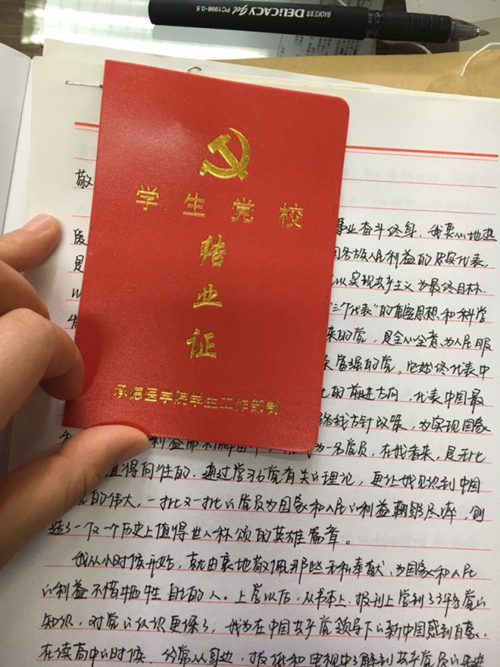 BAOKE DELICACY Gel PC1998-0.5
敬
学生党校
结业证
承德医学院学生工作部制
事业奋斗终身。我衷心地热
以实现共产主义为最终目标
"三个代表"的重要思想和科学
的党,是全心全意为人民服
的前进方向,代表中国最
路线方针政策,为实现国家
党员,在我看来,是无比
值得向往的。通过学习党有关的理论,更让我见识到中国
的伟大,一批又一批的党员为国家和人民的利益鞠躬尽瘁,创
造了一个又一个历史上值得世人称颂的英雄篇章。
我从小时候开始,就由衷地敬佩那些无私奉献,为国家和人民
的利益不惜牺牲自己的人。上学以后,从书本上、报刊上学到了许多党的
知识,对党的认识更深了。我为在中国共产党领导下的新中国感到自豪。
在读高中的时候,经常从身边、报纸和电视中了解到共产党员的